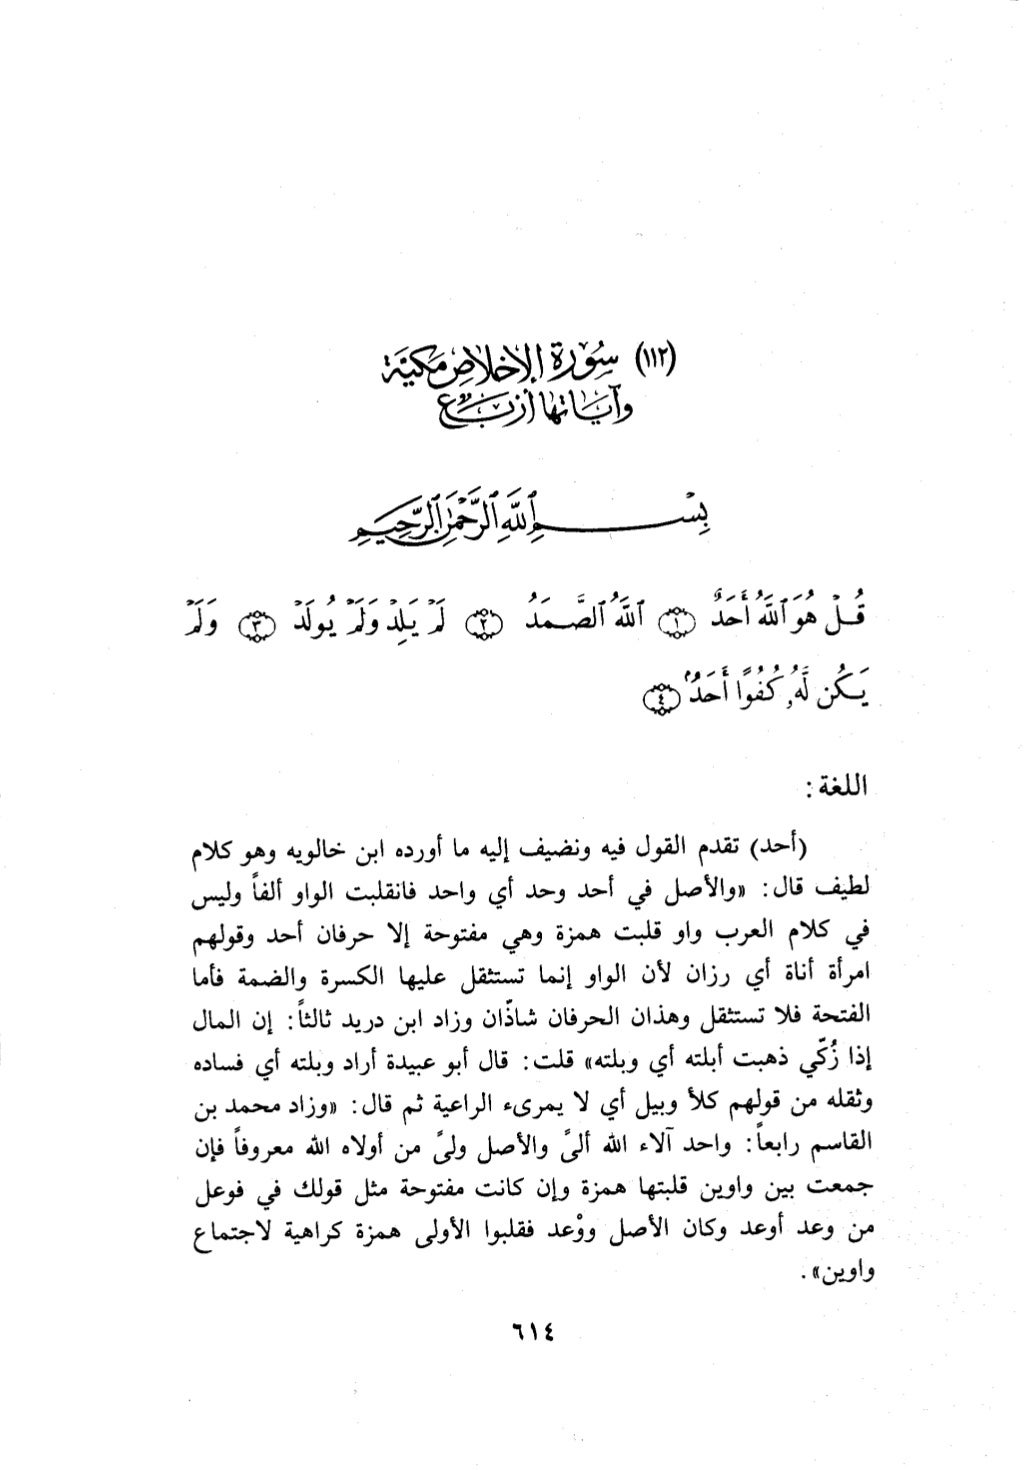 (١١٢) سُورَة الإخلاص مَكيَّة
وَآيَاتها أرْبَع
بِسْمِ ٱللَّهِ ٱلرَّحْمَٰنِ ٱلرَّحِيمِ
قُلْ هُوَ ٱللَّهُ أَحَدٌ ﴿١﴾ ٱللَّهُ ٱلصَّمَدُ ﴿٢﴾ لَمْ يَلِدْ وَلَمْ يُولَدْ ﴿٣﴾ وَلَمْ
يَكُن لَّهُۥ كُفُوًا أَحَدٌۢ ﴿٤﴾
اللغة :
(أحد) تقدم القول فيه ونضيف إليه ما أورده ابن خالويه وهو كلام
لطيف قال: «والأصل في أحد وحد أي واحد فانقلبت الواو ألفاً وليس
في كلام العرب واو قلبت همزة وهي مفتوحة إلا حرفان أحد وقولهم
امرأة أناة أي رزان لأن الواو إنما تستثقل عليها الكسرة والضمة فأما
الفتحة فلا تستثقل وهذان الحرفان شاذّان وزاد ابن دريد ثالثاً: إن المال
إذا زُكّي ذهبت أبلته أي وبلته» قلت: قال أبو عبيدة أراد وبلته أي فساده
وثقله من قولهم كلأ وبيل أي لا يمرىء الراعية ثم قال: «وزاد محمد بن
القاسم رابعاً: واحد آلاء الله ألىً والأصل ولىً من أولاه الله معروفاً فإن
جمعت بين واوين قلبتها همزة وإن كانت مفتوحة مثل قولك في فوعل
من وعد أوعد وكان الأصل ووْعد فقلبوا الأولى همزة كراهية لاجتماع
واوين».
٦١٤